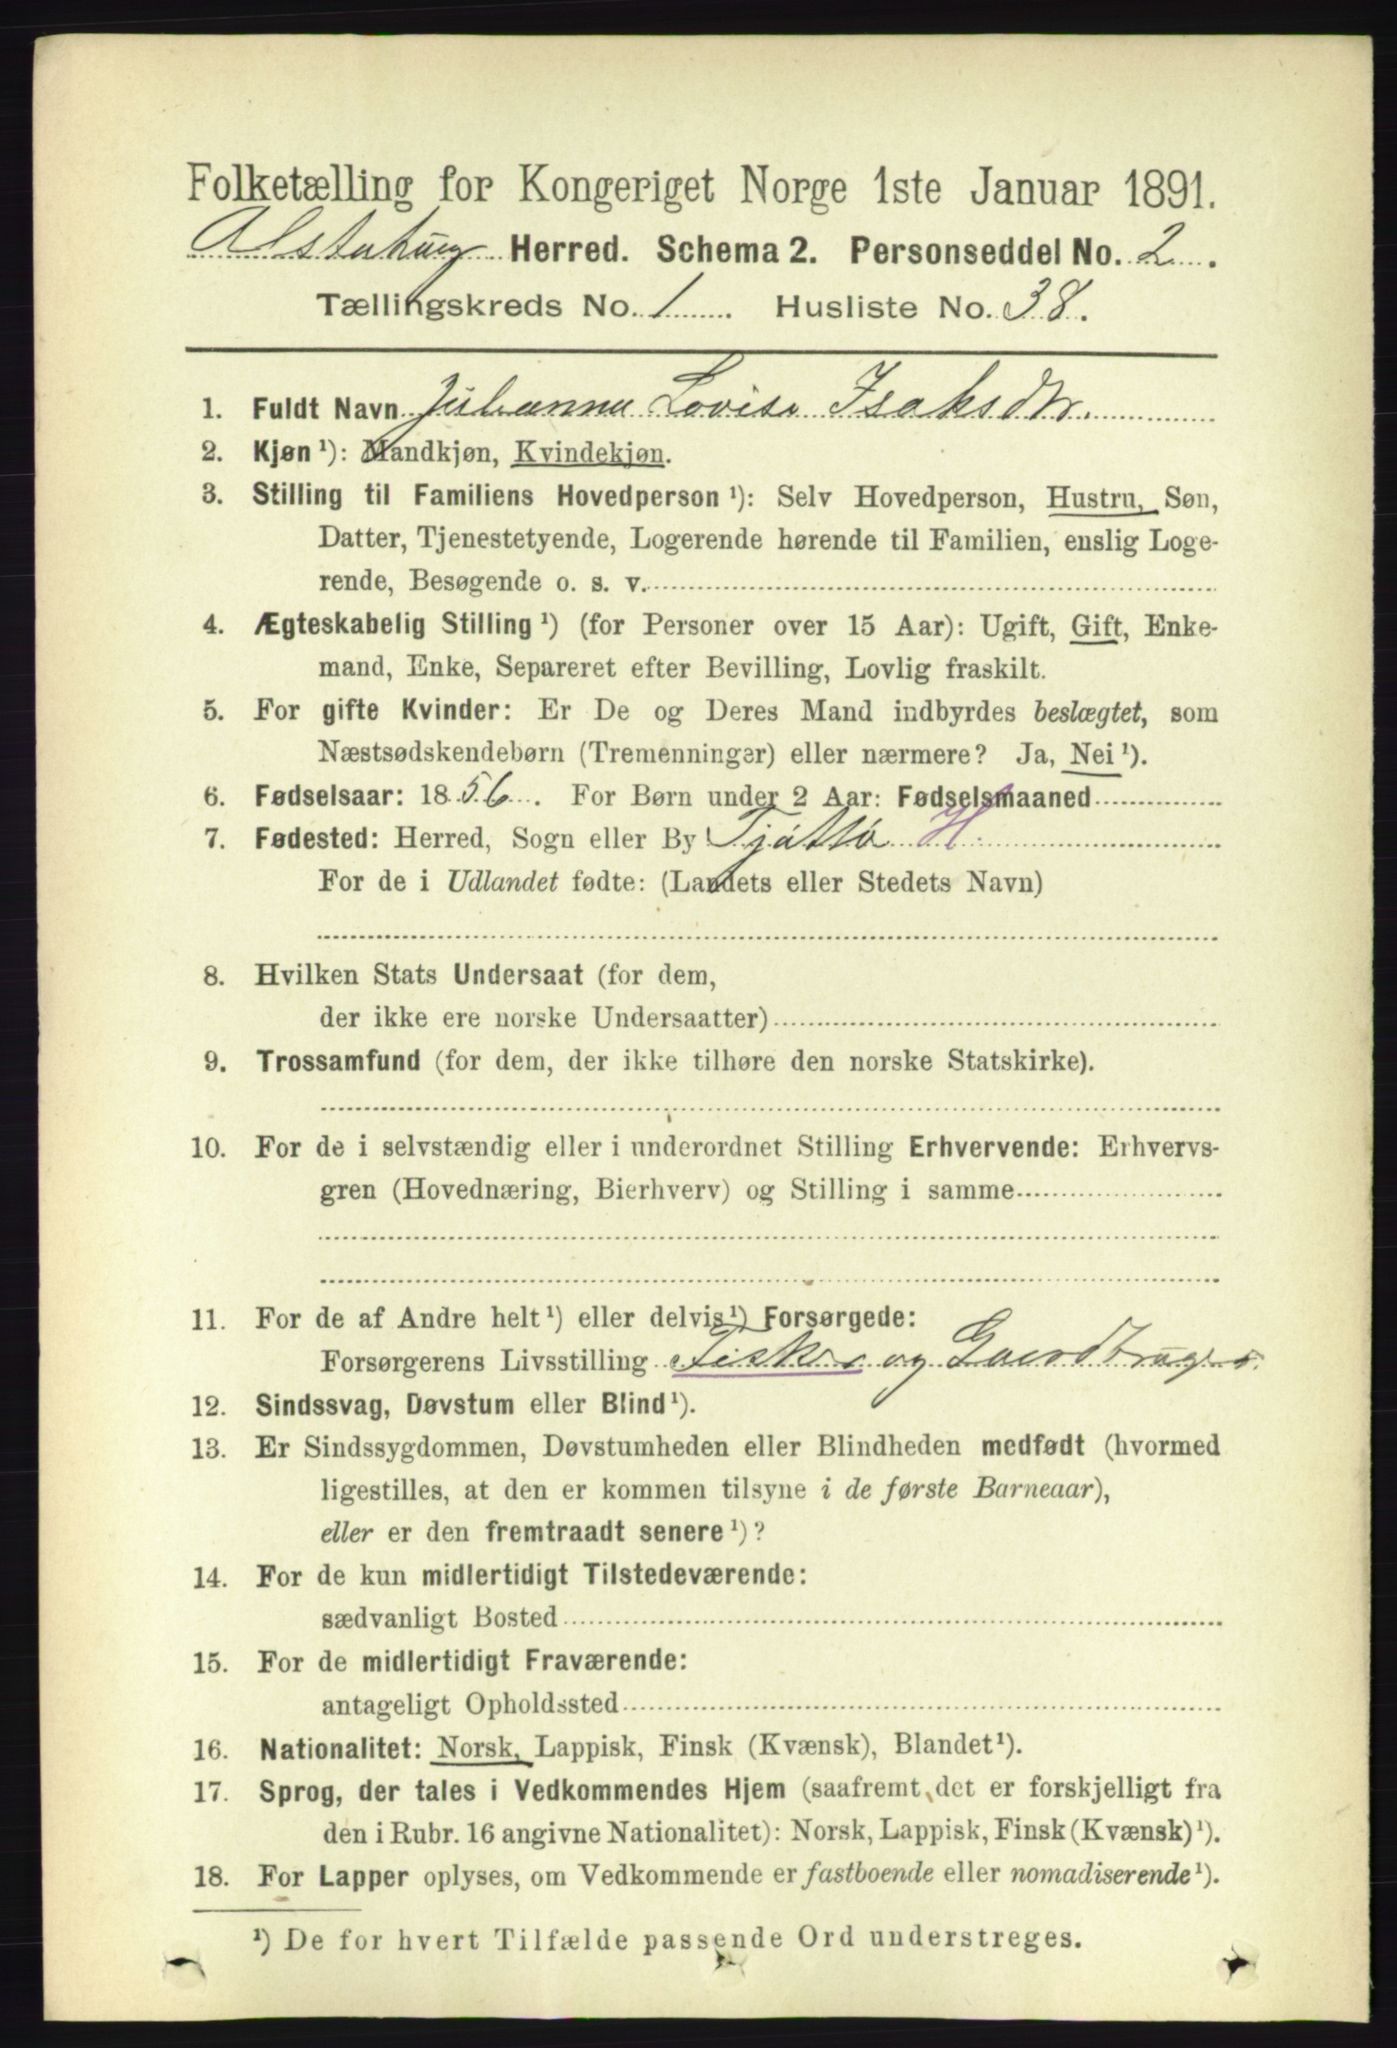 Folketælling for Kongeriget Norge 1ste Januar 1891.
Alstahaug Herred. Schema 2. Personseddel No. 2.
Tællingskreds No. 1 Husliste No. 38.
1. Fuldt Navn Julianna Lovise Isaksdtr.
2. Kjøn ¹): Mandkjøn, Kvindekjøn.
3. Stilling til Familiens Hovedperson ¹): Selv Hovedperson, Hustru, Søn,
Datter, Tjenestetyende, Logerende hørende til Familien, enslig Loge-
rende, Besøgende o. s. v.
4. Ægteskabelig Stilling ¹) (for Personer over 15 Aar): Ugift, Gift, Enke-
mand, Enke, Separeret efter Bevilling, Lovlig fraskilt.
5. For gifte Kvinder: Er De og Deres Mand indbyrdes beslægtet, som
Næstsødskendebørn (Tremenninger) eller nærmere? Ja, Nei ¹).
6. Fødselsaar: 1856. For Børn under 2 Aar: Fødselsmaaned
7. Fødested: Herred, Sogn eller By Tjøttø H.
For de i Udlandet fødte: (Landets eller Stedets Navn)
8. Hvilken Stats Undersaat (for dem,
der ikke ere norske Undersaatter)
9. Trossamfund (for dem, der ikke tilhøre den norske Statskirke).
10. For de i selvstændig eller i underordnet Stilling Erhvervende: Erhvervs-
gren (Hovednæring, Bierhverv) og Stilling i samme
11. For de af Andre helt ¹) eller delvis ¹) Forsørgede:
Forsørgerens Livsstilling Fisker og Gaardbruger
12. Sindssvag, Døvstum eller Blind ¹).
13. Er Sindssygdommen, Døvstumheden eller Blindheden medfødt (hvormed
ligestilles, at den er kommen tilsyne i de første Barneaar),
eller er den fremtraadt senere ¹)?
14. For de kun midlertidigt Tilstedeværende:
sædvanligt Bosted
15. For de midlertidigt Fraværende:
antageligt Opholdssted
16. Nationalitet: Norsk, Lappisk, Finsk (Kvænsk), Blandet ¹).
17. Sprog, der tales i Vedkommendes Hjem (saafremt det er forskjelligt fra
den i Rubr. 16 angivne Nationalitet): Norsk, Lappisk, Finsk (Kvænsk) ¹).
18. For Lapper oplyses, om Vedkommende er fastboende eller nomadiserende ¹).
¹) De for hvert Tilfælde passende Ord understreges.